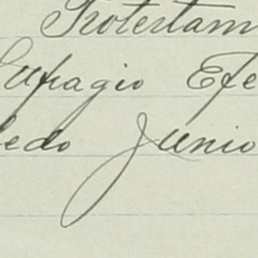 Protestam
Sufragio Efe
ledo Junio